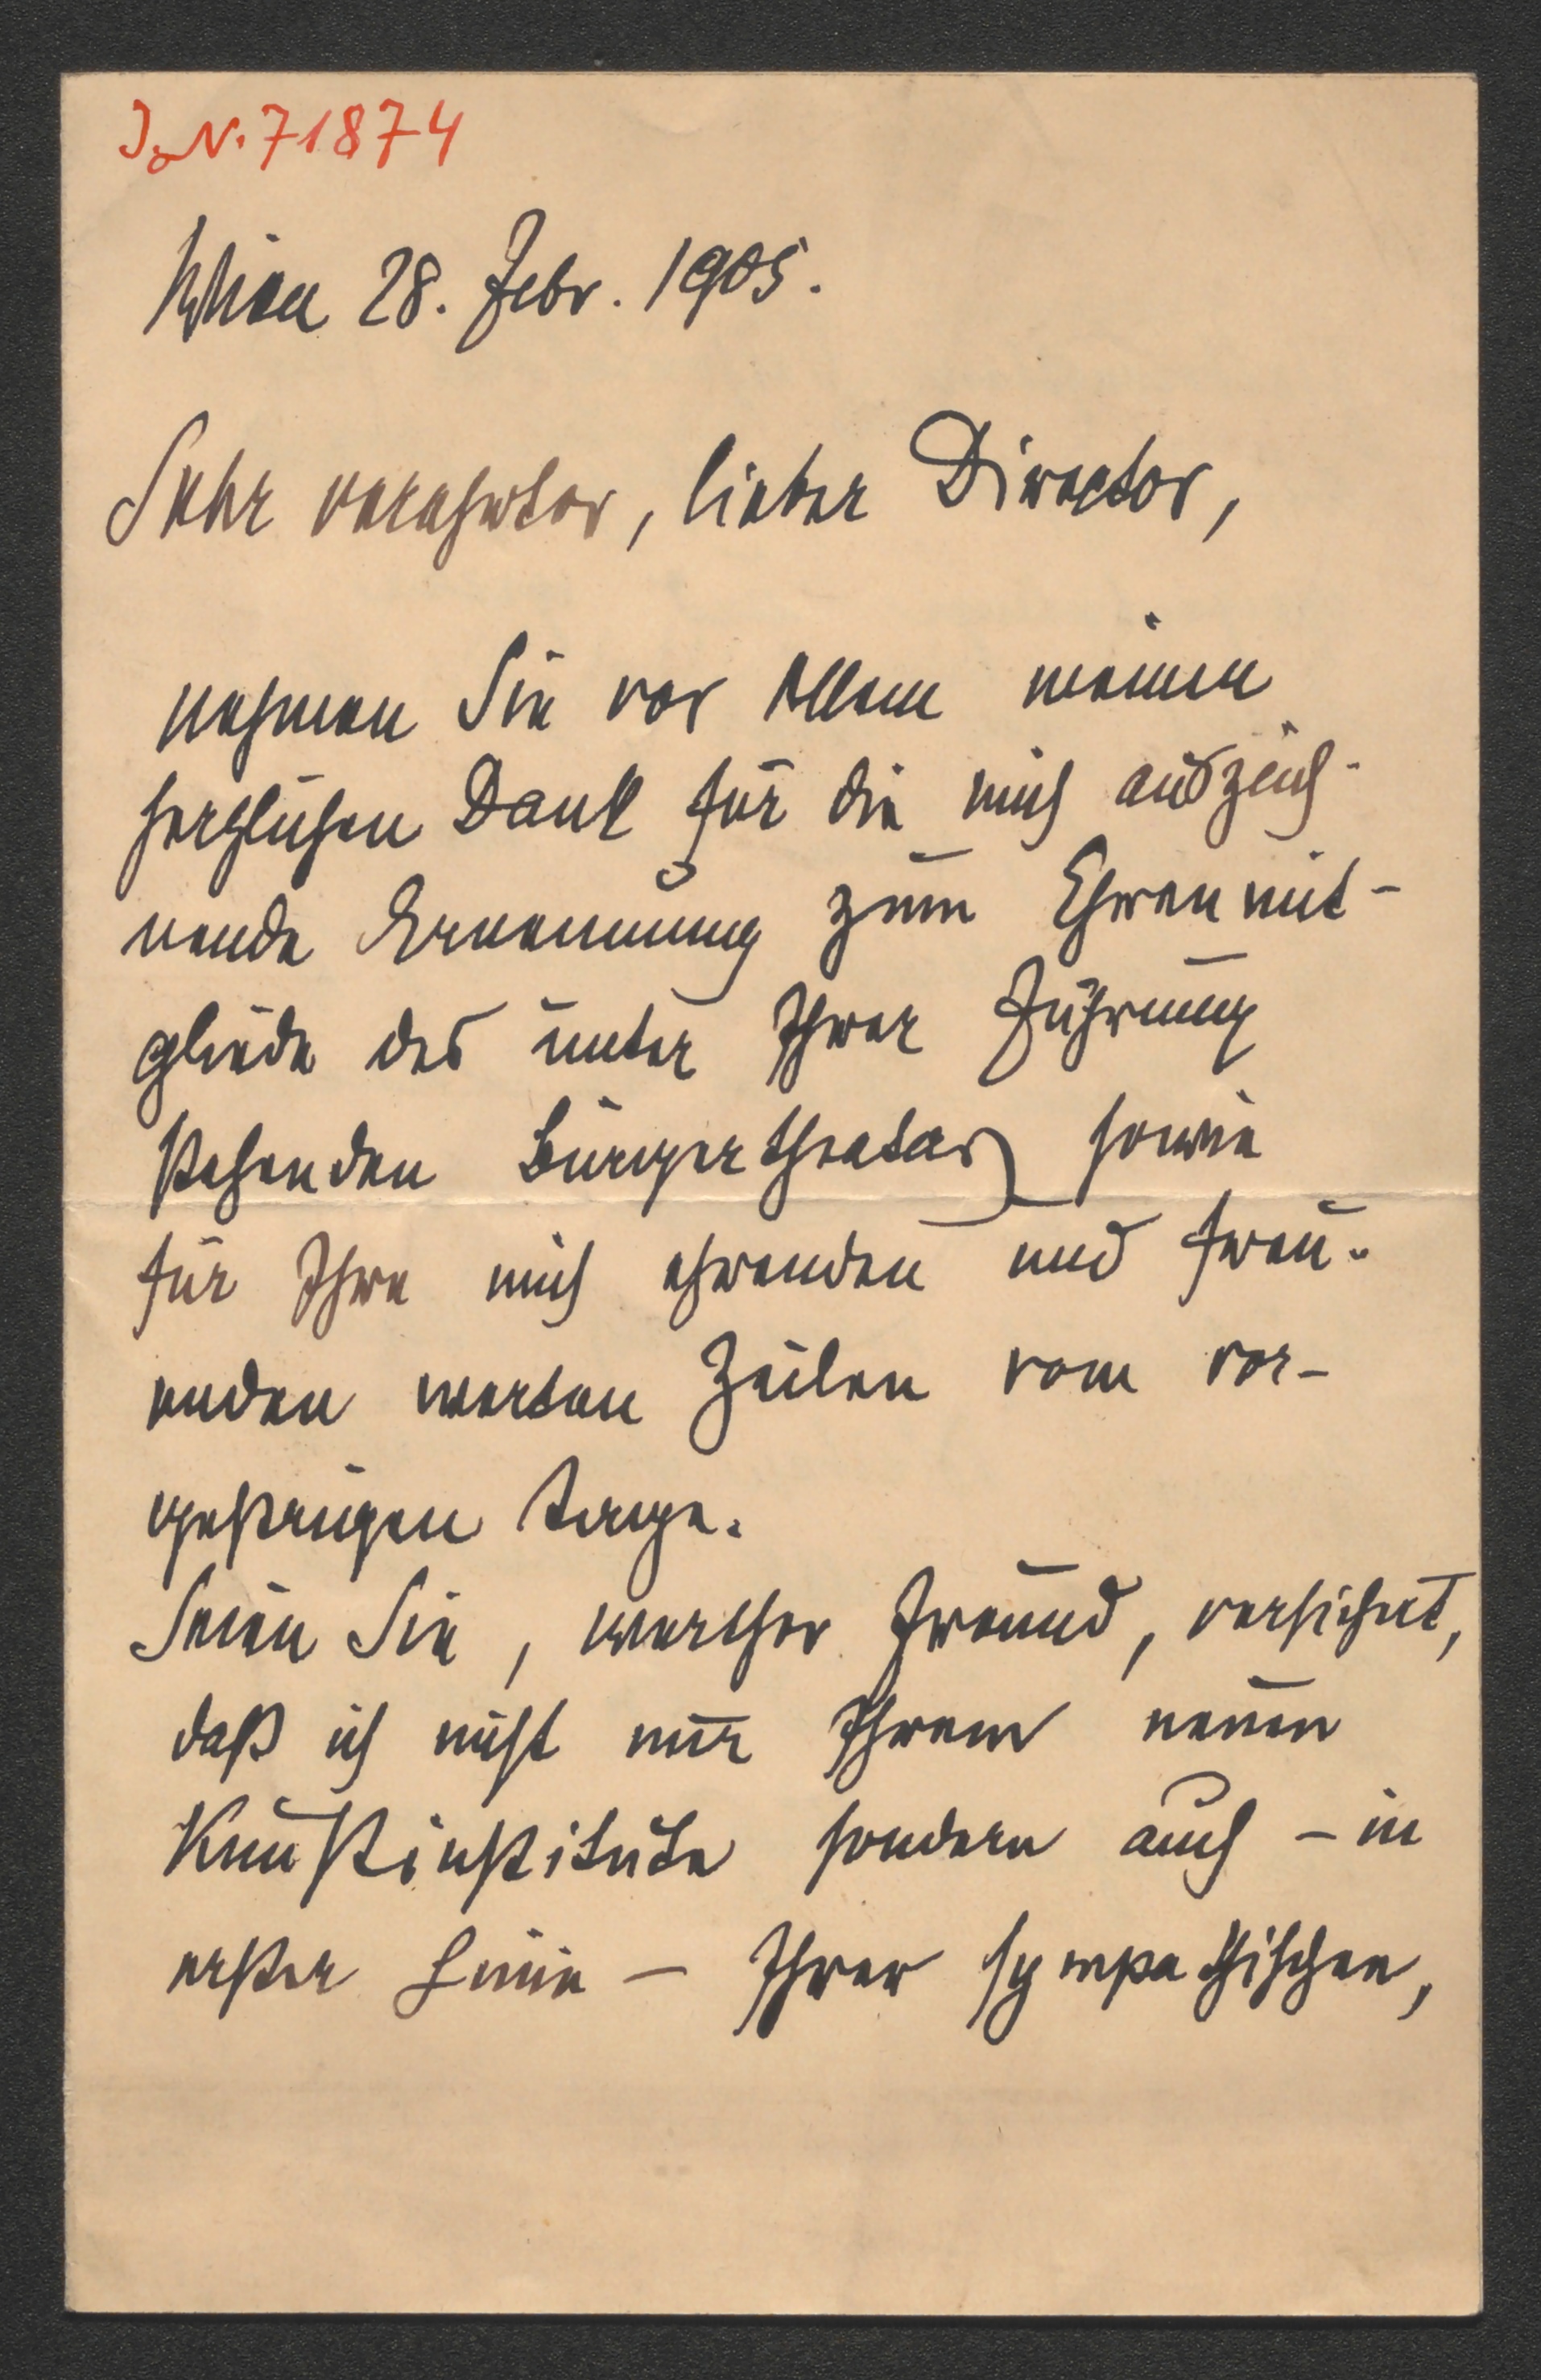 J. N. 71874
Wien 28. Febr. 1905.
Sehr verehrter, lieber Director,
nehmen Sie vor Allem meinen
herzlichen Dank für die mich auszeich-
nende Ernennung zum Ehrenmit-
gliede des unter Ihrer Führung
stehenden Bürgertheaters sowie
für Ihre mich ehrenden und freu-
enden werten Zeilen vom vor-
gestrigen Tage.
Seien Sie, werther Freund, versichert,
daß ich nicht nur Ihrem neuen
Kunstinstitute sondern auch – in
erster Linie – Ihrer sympathischen,